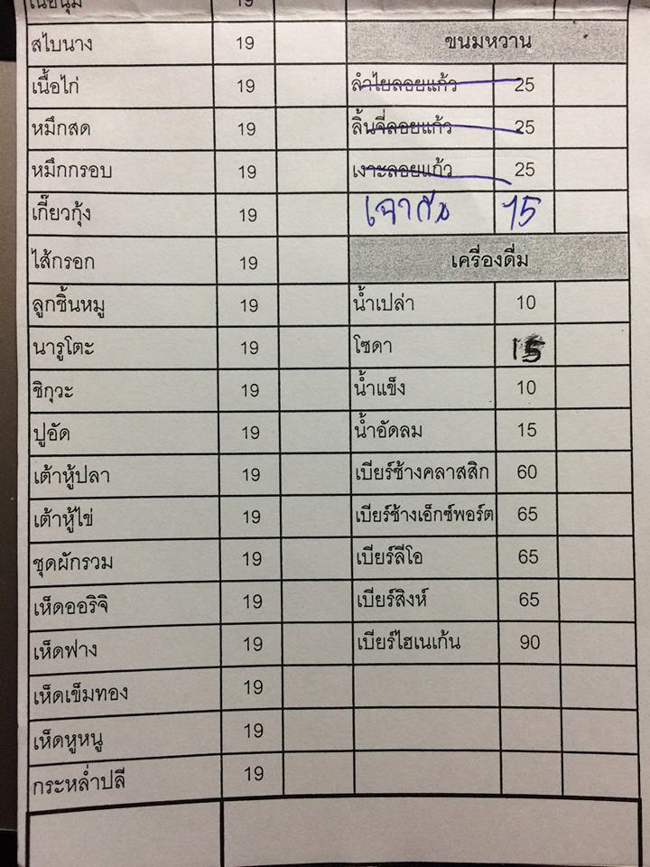 เนื้อนุ่ม 19
สไบนาง 19 ขนมหวาน
เนื้อไก่ 19 ลำไยลอยแก้ว 25
หมึกสด 19 ลิ้นจี่ลอยแก้ว 25
หมึกกรอบ 19 เงาะลอยแก้ว 25
เกี๊ยวกุ้ง 19 เฉาก๊วย 15
ไส้กรอก 19 เครื่องดื่ม
ลูกชิ้นหมู 19 น้ำเปล่า 10
นารูโตะ 19 โซดา 15
ชิกุวะ 19 น้ำแข็ง 10
ปูอัด 19 น้ำอัดลม 15
เต้าหู้ปลา 19 เบียร์ช้างคลาสสิก 60
เต้าหู้ไข่ 19 เบียร์ช้างเอ็กซ์พอร์ต 65
ชุดผักรวม 19 เบียร์ลีโอ 65
เห็ดออริจิ 19 เบียร์สิงห์ 65
เห็ดฟาง 19 เบียร์ไฮเนเก้น 90
เห็ดเข็มทอง 19
เห็ดหูหนู 19
กระหล่ำปลี 19